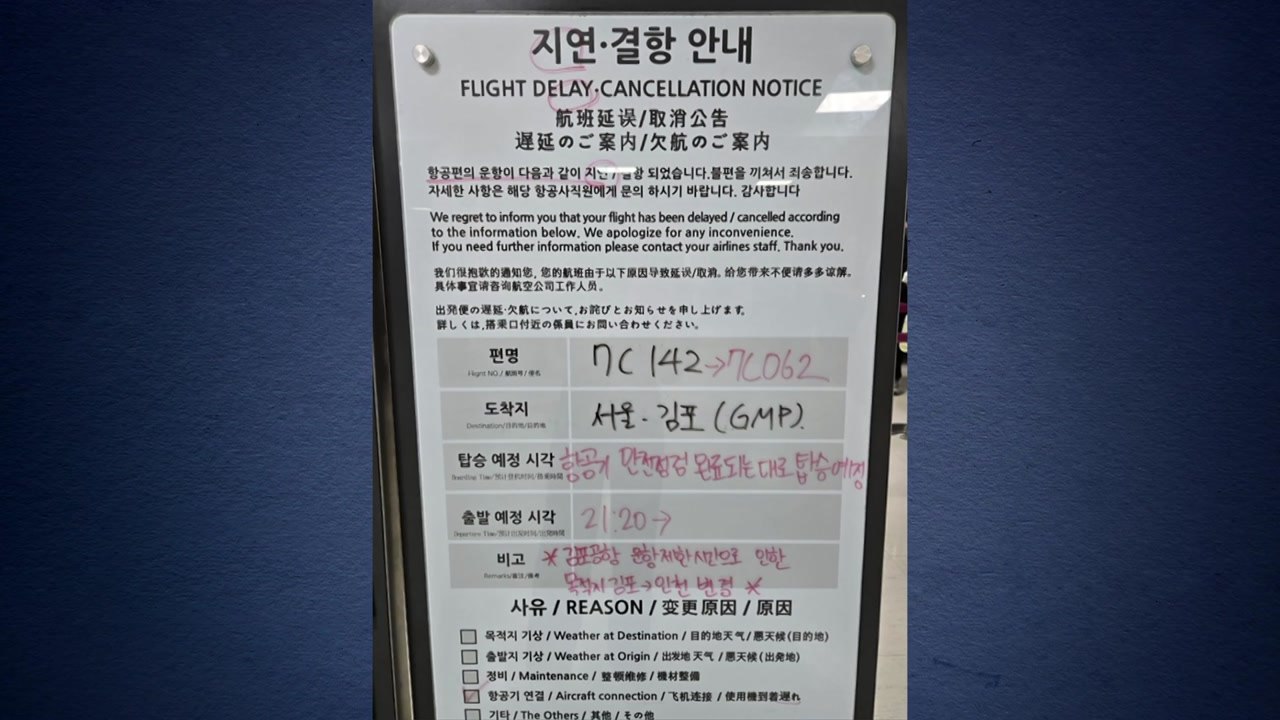 지연·결항 안내
FLIGHT DELAY·CANCELLATION NOTICE
航班延误/取消公告
遅延のご案内/欠航のご案内
항공편의 운항이 다음과 같이 지연 / 결항 되었습니다.불편을 끼쳐서 죄송합니다.
자세한 사항은 해당 항공사직원에게 문의 하시기 바랍니다. 감사합니다
We regret to inform you that your flight has been delayed / cancelled according
to the information below. We apologize for any inconvenience.
If you need further information please contact your airlines staff. Thank you.
我们很抱歉的通知您, 您的航班由于以下原因导致延误/取消。给您带来不便请多多谅解。
具体事宜请咨询航空公司工作人员。
出発便の遅延·欠航について,お詫びとお知らせを申し上げます。
詳しくは,搭乗口付近の係員にお問い合わせください。
편명 7C 142→7C062
Flight NO./ 航班号/ 便名
도착지 서울·김포 (GMP).
Destination/目的地/目的地
탑승 예정 시각 항공기 안전점검 완료되는대로 탑승예정
Boarding Time/预计登机时间/搭乗時間
출발 예정 시각 21:20→
Departure Time/预计出发时间/出発時間
비고 * 김포공항 운항제한시간으로 인한
Remarks/备注/備考
목적지 김포→인천 변경 *
사유 / REASON / 变更原因 / 原因
목적지 기상 / Weather at Destination / 目的地天气 / 悪天候(目的地)
출발지 기상 / Weather at Origin / 出发地 天气 / 悪天候(出発地)
정비 / Maintenance / 整顿维修 / 機材整備
항공기 연결 / Aircraft connection / 飞机连接 / 使用機到着遅れ
기타 / The Others / 其他 / その他